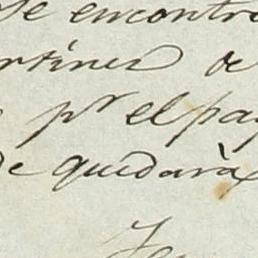 se encontr
rtines de
pr el pa
de quedarà